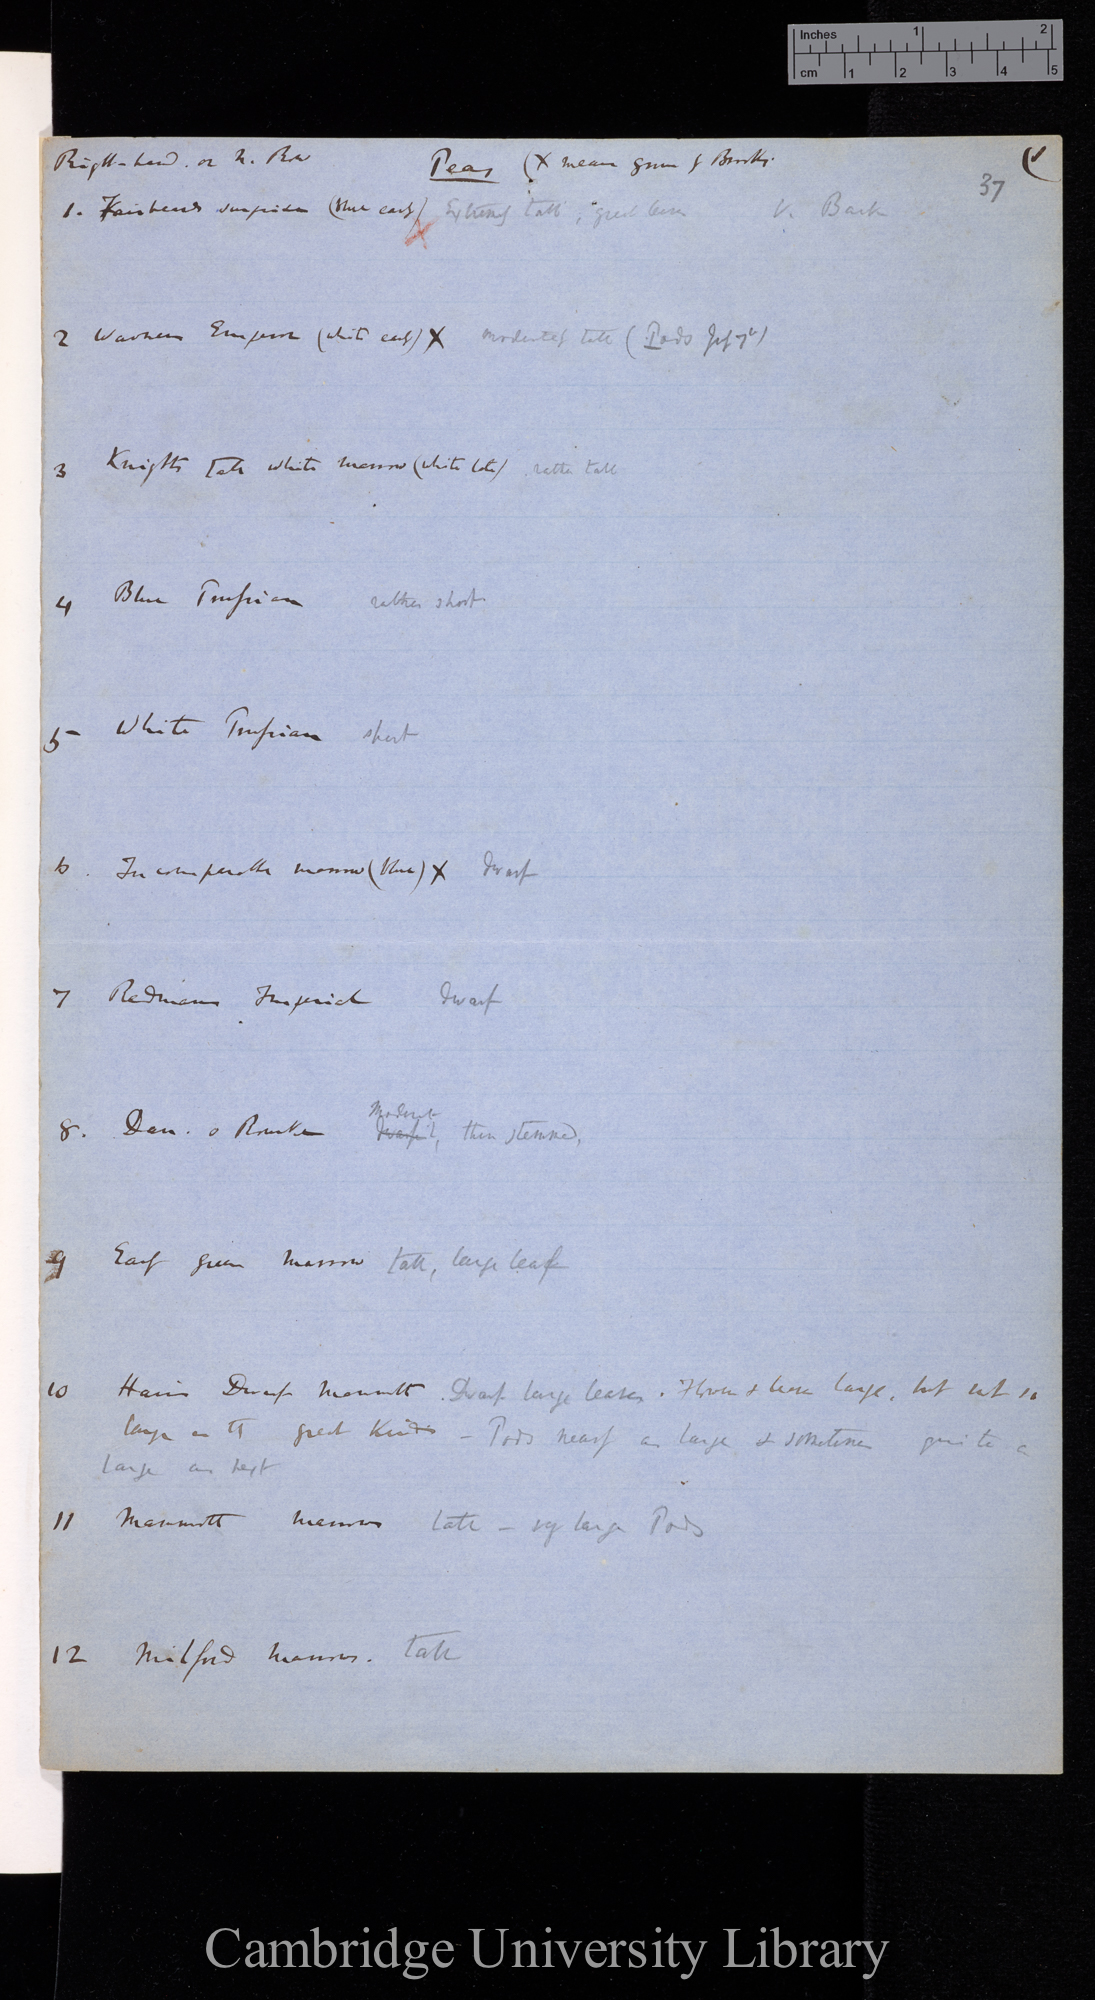 Inches 1 2
cm 1 2 3 4 5
Right-hand. or N. Row Peas (X means grown by Brooks. (✓
37
1. Fairbeards surprise (blue early) Extremely tall, great leaves V. Back
2 Warners Emperor (white early) X moderately tall (Pods July 7th)
3 Knights tall white marrow (white late) rather tall
4 Blue Prussian rather short
5 White Prussian short
6. Incomparable marrow (blue) X Dwarf
7 Redmans Imperial dwarf
Moderate
8. Dan. o Rourke thin stemmed,
9 Early green Marrow tall, large leaf
10 Hairs Dwarf Mammoth. Dwarf large leaves. Flower & leave large, but not so
large as the great Kinds – Pods nearly as large & sometimes quite as
large as next
11 Mammoth Marrow tall – very large Pods
12 Milford Marrow. tall
Cambridge University Library